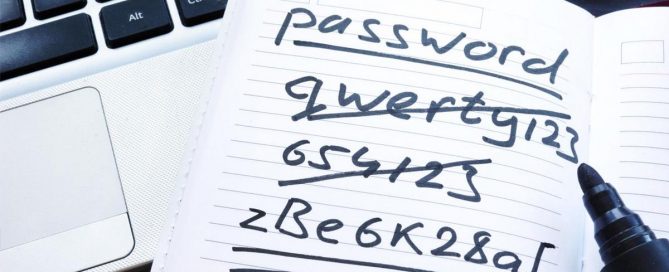 Alt
password
qwerty123
654123
zBe6K28a[